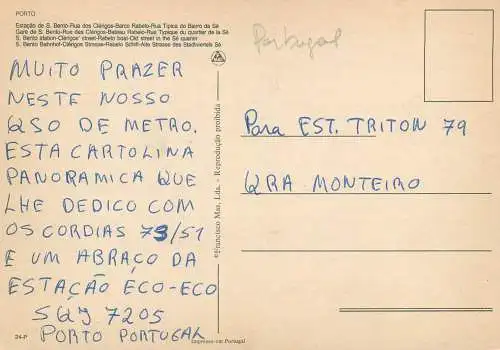 PORTO
Estação de S. Bento-Rua dos Clérigos-Barco Rabelo-Rua Típica do Bairro da Sé
Gare de S. Bento-Rue des Clérigos-Bateau Rabelo-Rue Typique du quartier de la Sé
S. Bento station-Clérigos' street-Rabelo boat-Old street in the Sé quarter
S. Bento Bahnhof-Clérigos Strasse-Rabelo Schiff-Alte Strasse des Stadtviertels Sé
Portugal
MUITO PRAZER
NESTE NOSSO
QSO DE METRO.
ESTA CARTOLINA
PANORAMICA QUE
LHE DEDICO COM
OS CORDIAS 73/51
E UM ABRAÇO DA
ESTAÇÃO ECO-ECO
SQJ 7205
PORTO PORTUGAL
24-P
©Francisco Mas, Lda. - Reprodução proibida
Impresso em Portugal
Para EST. TRITON 79
QRA MONTEIRO